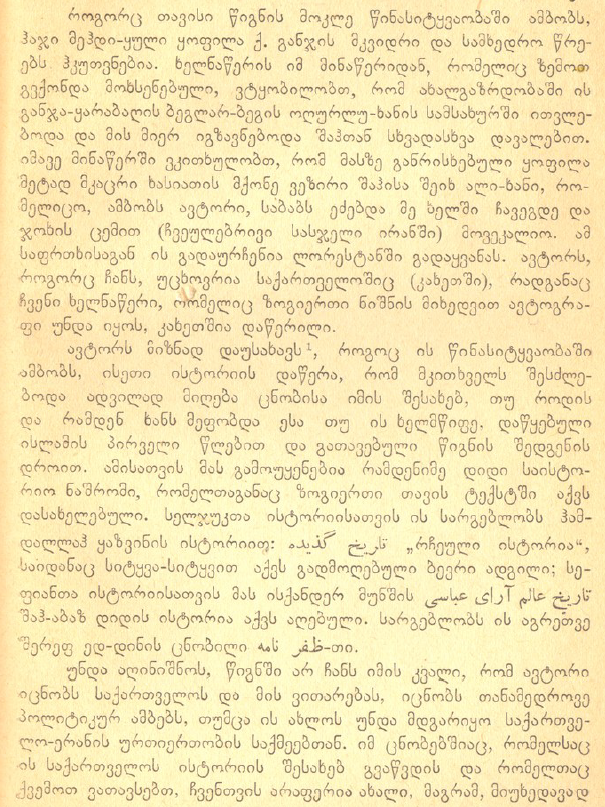 როგორც თავისი წიგნის მოკლე წინასიტყვაობაში ამბობს,
ჰაჯი მეჰდი-ყული ყოფილა ქ. განჯის მკვიდრი და სამხედრო წრე-
ებს ჰკუთვნებია. ხელნაწერის იმ მინაწერიდან, რომელიც ზემოთ
გვქონდა მოხსენებული, ვტყობილობთ, რომ ახალგაზრდობაში ის
განჯა-ყარაბაღის ბეგლარ-ბეგის ოღურლუ-ხანის სამსახურში ითვლე-
ბოდა და მის მიერ იგზავნებოდა შაჰთან სხვადასხვა დავალებით.
იმავე მინაწერში ვკითხულობთ, რომ მასზე განრისხებული ყოფილა
მეტად მკაცრი ხასიათის მქონე ვეზირი შაჰისა შეიხ ალი-ხანი, რო-
მელიცო, ამბობს ავტორი, საბაბს ეძებდა მე ხელში ჩავეგდე და
ჯოხის ცემით (ჩვეულებრივი სასჯელი ირანში) მოვეკალიო. ამ
საფრთხისაგან ის გადაურჩენია ლორესტანში გადაყვანას. ავტორს,
როგორც ჩანს, უცხოვრია საქართველოშიც (კახეთში), რადგანაც
ჩვენი ხელნაწერი, რომელიც ზოგიერთი ნიშნის მიხედვით ავტოგრა-
ფი უნდა იყოს, კახეთშია დაწერილი.
ავტორს მიზნად დაუსახავს¹, როგოც ის წინასიტყვაობაში
ამბობს, ისეთი ისტორიის დაწერა, რომ მკითხველს შესძლე-
ბოდა ადვილად მიღება ცნობისა იმის შესახებ, თუ როდის
და რამდენ ხანს მეფობდა ესა თუ ის ხელმწიფე, დაწყებული
ისლამის პირველი წლებით და გათავებული წიგნის შედგენის
დროით. ამისათვის მას გამოუყენებია რამდენიმე დიდი საისტო-
რიო ნაშრომი, რომელთაგანაც ზოგიერთი თავის ტექსტში აქვს
დასახელებული. სელჯუკთა ისტორიისათვის ის სარგებლობს ჰამ-
დალლაჰ ყაზვინის ისტორიით: تاريخ گذيده „რჩეული ისტორია“,
საიდანაც სიტყვა-სიტყვით აქვს გადმოღებული ბევრი ადგილი; სე-
ფიანთა ისტორიისათვის მას ისქანდერ მუნშის تاريخ عالم آراى عباسى
შაჰ-აბაზ დიდის ისტორია აქვს აღებული. სარგებლობს ის აგრეთვე
შერეფ ედ-დინის ცნობილი ظفر نامه-თი.
უნდა აღინიშნოს, წიგნში არ ჩანს იმის კვალი, რომ ავტორი
იცნობს საქართველოს და მის ვითარებას, იცნობს თანამედროვე
პოლიტიკურ ამბებს, თუმცა ის ახლოს უნდა მდგარიყო საქართვე-
ლო-ერანის ურთიერთობის საქმეებთან. იმ ცნობებშიაც, რომელსაც
ის საქართველოს ისტორიის შესახებ გვაწვდის და რომელთაც
ქვემოთ ვათავსებთ, ჩვენთვის არაფერია ახალი, მაგრამ, მიუხედავად